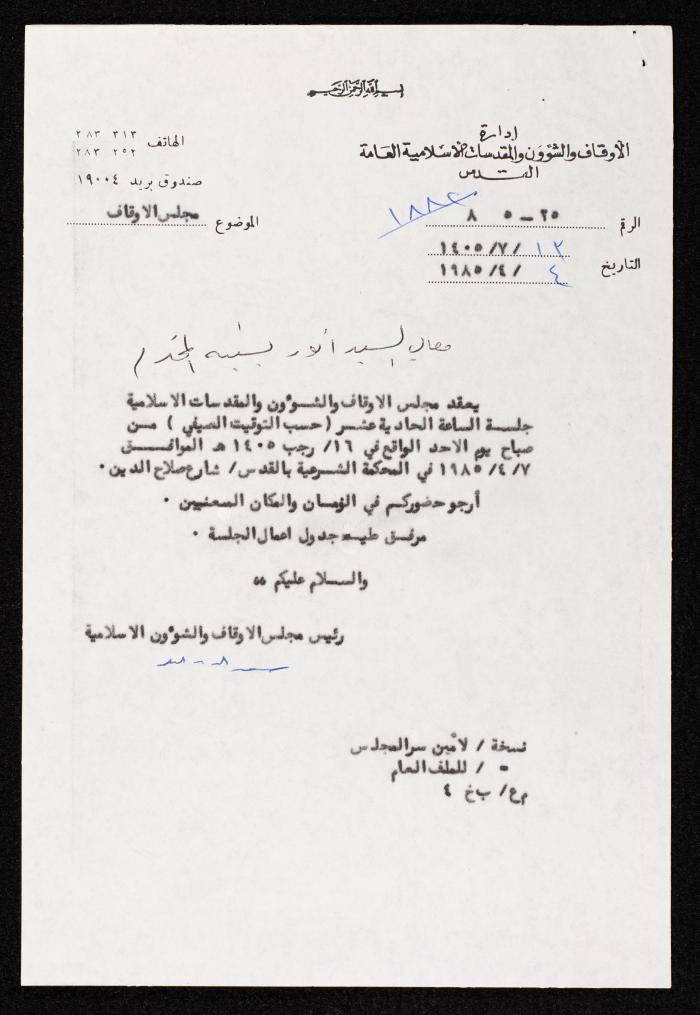 بسم الله الرحمن الرحيم
إدارة
الأوقاف والشؤون والمقدسات الاسلامية العامة
القدس
الهاتف ٢٨٣ ٣١٣
٢٨٣ ٢٥٢
صندوق بريد ١٩٠٠٤
الرقم ٢٥ – ٥ ٨
الموضوع مجلس الاوقاف
التاريخ ١٣ /٧/ ١٤٠٥
٤ /٤/ ١٩٨٥
معالي السيد أنور نسيبه المحترم
يعقد مجلس الاوقاف والشوءون والمقدسات الاسلامية
جلسة الساعة الحادية عشر (حسب التوقيت الصيفي ) من
صباح يوم الاحد الواقع في ١٦/ رجب ١٤٠٥ هـ الموافق
٧ /٤/ ١٩٨٥ في المحكمة الشرعية بالقدس/ شارع صلاح الدين .
أرجو حضوركم في الزمان والمكان المعنيين .
مرفق طيه جدول اعمال الجلسة .
والسلام عليكم ،،
رئيس مجلس الاوقاف والشوءون الاسلامية
نسخة / لأمين سر المجلس
= / للملف العام
م ع/ ب خ ٤